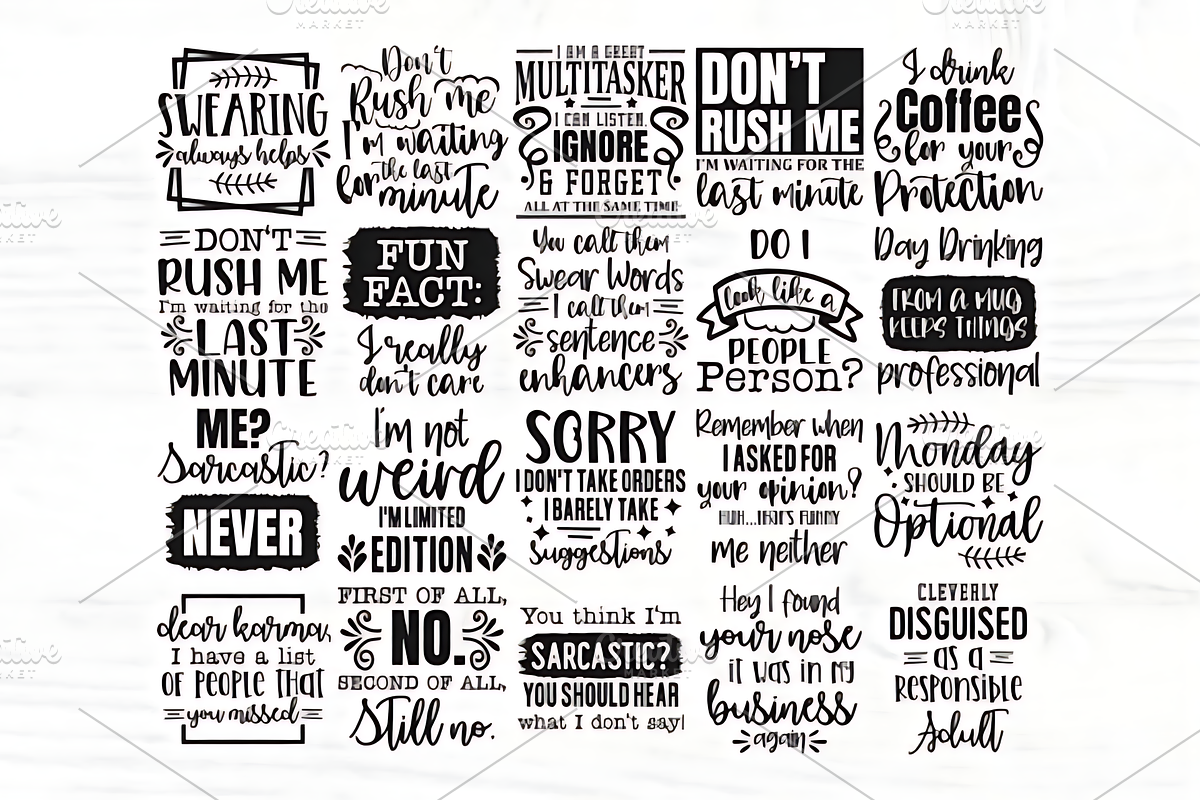 SWEARING
always helps
Don't
Rush me
I'm waiting
for the last
minute
I AM A GREAT
MULTITASKER
I CAN LISTEN,
IGNORE
& FORGET
ALL AT THE SAME TIME
DON'T
RUSH ME
I'M WAITING FOR THE
last minute
I drink
Coffee
for your
Protection
DON'T
RUSH ME
I'm waiting for the
LAST
MINUTE
FUN
FACT:
I really
don't care
You call them
Swear Words
I call them
sentence
enhancers
DO I
look like a
PEOPLE
Person?
Day Drinking
FROM A MUG
KEEPS THINGS
professional
ME?
Sarcastic?
NEVER
I'm not
weird
I'M LIMITED
EDITION
SORRY
I DON'T TAKE ORDERS
I BARELY TAKE
suggestions
Remember when
I ASKED FOR
your opinion?
HUH...THAT'S FUNNY
me neither
Monday
SHOULD BE
Optional
dear karma,
I have a list
OF PEOPLE THAT
you missed
FIRST OF ALL,
NO.
SECOND OF ALL,
Still no.
You think I'm
SARCASTIC?
YOU SHOULD HEAR
what I don't say!
Hey I found
your nose
it was in my
business
again
CLEVERLY
DISGUISED
as a
RESPONSIBLE
Adult
Creative
MARKET